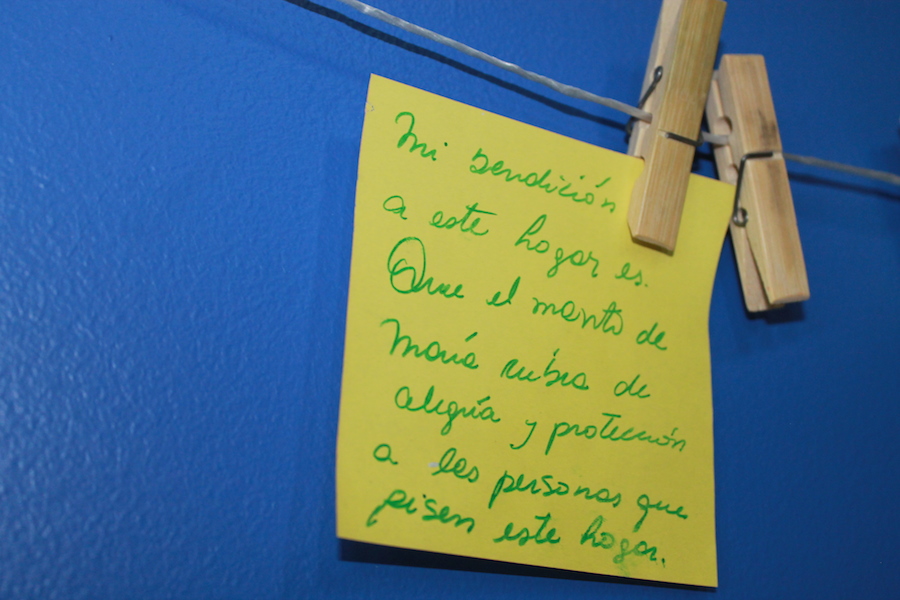 Mi bendición
a este hogar es.
Que el manto de
María cubra de
alegría y protección
a las personas que
pisen este hogar.